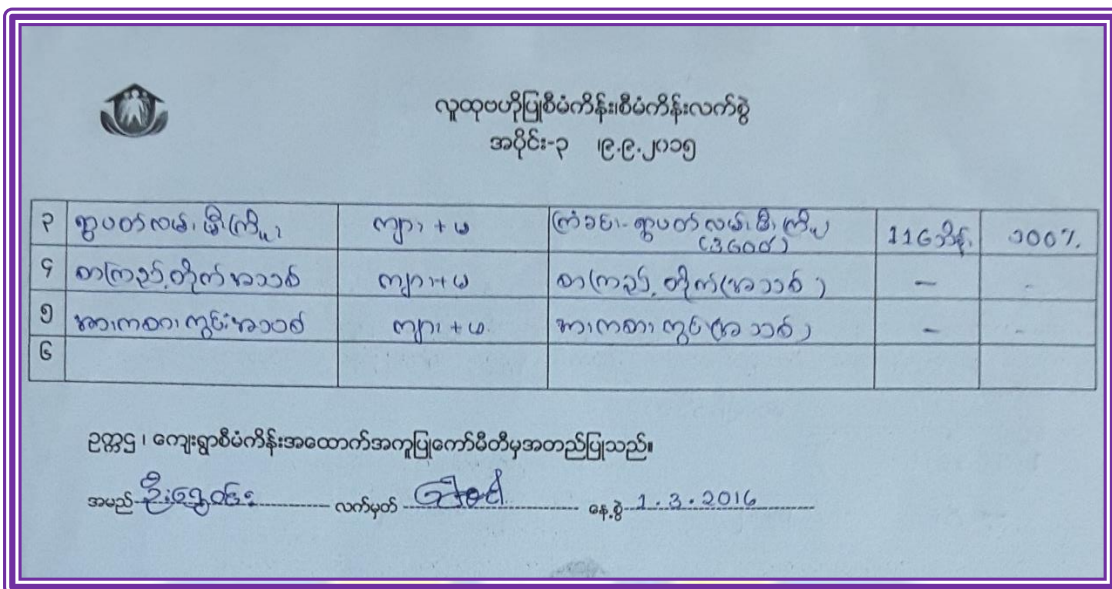 လူထုဗဟိုပြုစီမံကိန်း၊စီမံကိန်းလက်စွဲ
အပိုင်း-၃ ၊၉.၉.၂၀၁၅
၃ ရွာပတ်လမ်း၊ မီးကြိုး၊ ကျား + မ ကြံခင်း-ရွာပတ်လမ်း၊ မီးကြိုး 116သိန်း 100%
(3600')
၄ စာကြည့်တိုက်အသစ် ကျား+မ စာကြည့်တိုက်(အသစ်) - -
၅ အားကစားကွင်းအသစ် ကျား + မ အားကစားကွင်း(အသစ်) - -
၆
ဥက္ကဌ ၊ ကျေးရွာစီမံကိန်းအထောက်အကူပြုကော်မီတီမှအတည်ပြုသည်။
အမည် လက်မှတ် နေ့စွဲ 1.3.2016